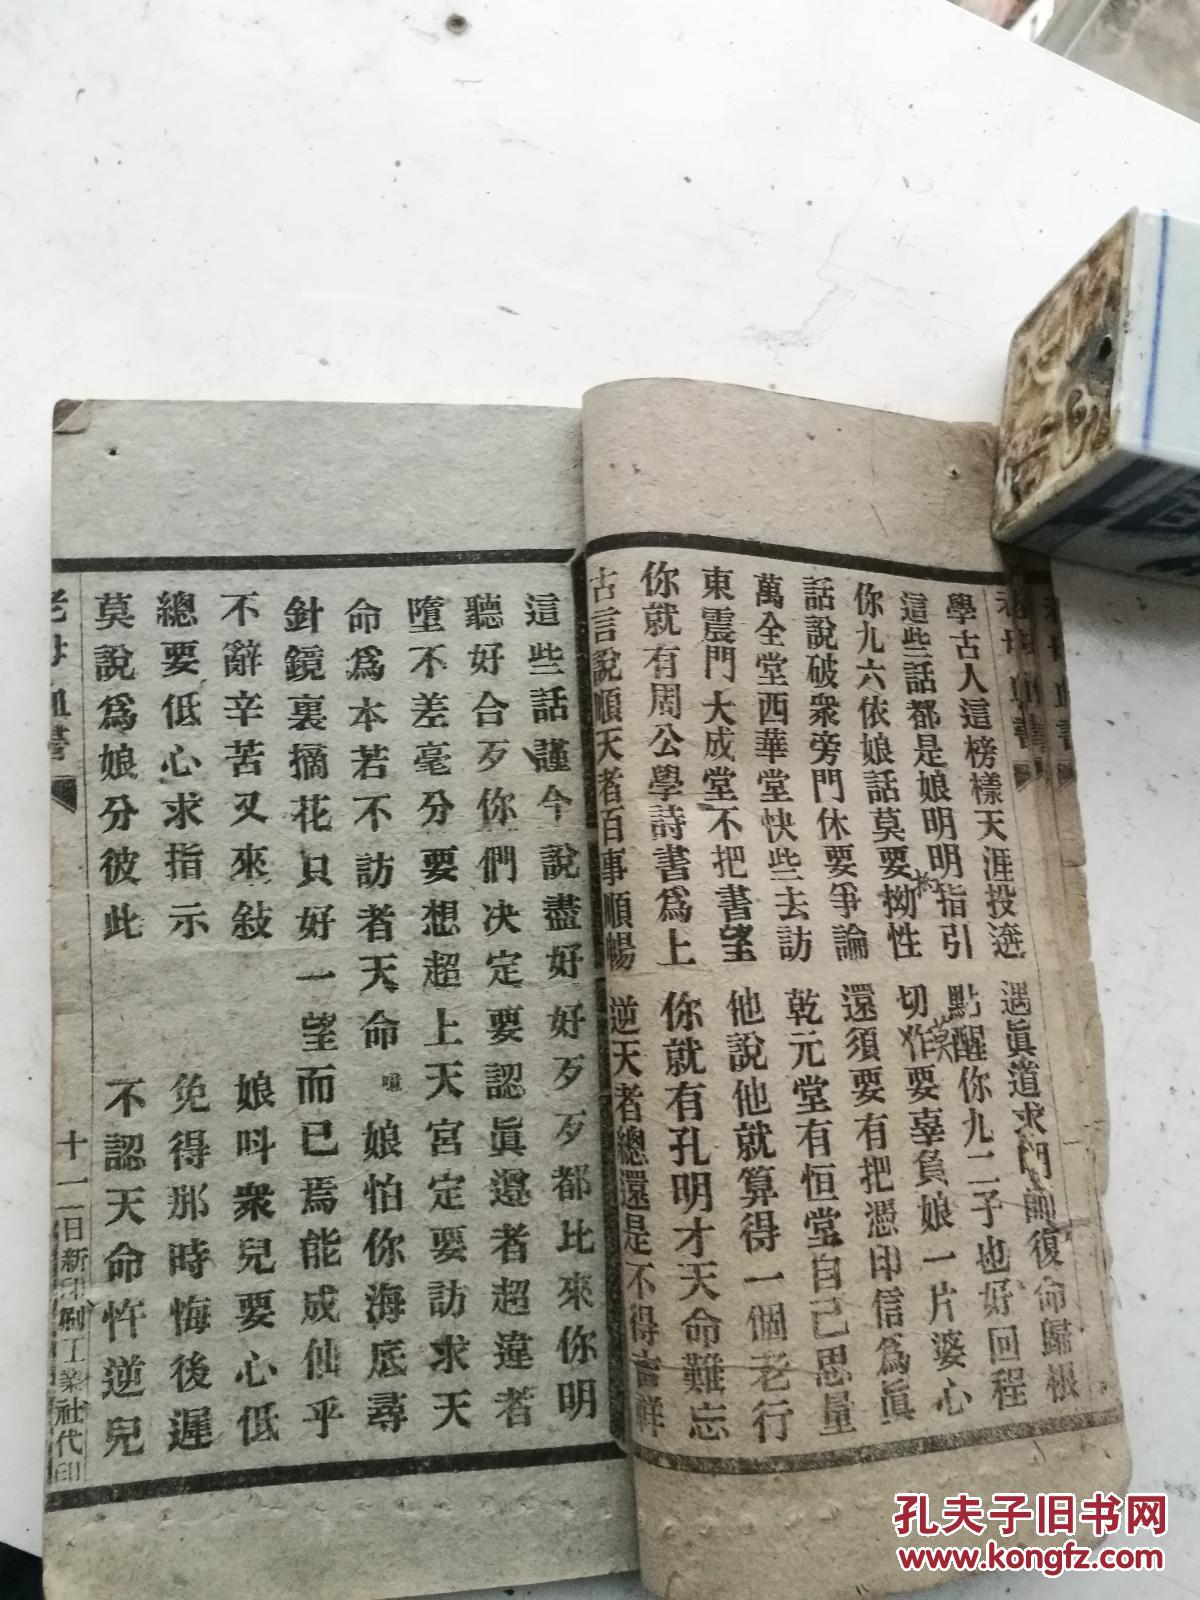 學古人這榜樣天涯投逩　遇眞道求門師復命歸根
這些話都是娘明明指引　點醒你九二子也好回程
你九六依娘話莫要拗性　切莫要辜負娘一片婆心
話說破衆旁門休要爭論　還須要有把憑印信爲眞
萬全堂西華堂快些去訪　乾元堂有恒堂自己思量
東震門大成堂不把書望　他說他就算得一個老行
你就有周公學詩書爲上　你就有孔明才天命難忘
古言說順天者百事順暢　逆天者總還是不得吉祥
這些話謹今說盡好好歹歹都比來你明
聽好合歹你們决定要認眞遵者超違者
墮不差毫分要想超上天宮定要訪求天
命爲本若不訪者天命　娘怕你海底尋
針鏡裏摘花只好一望而已焉能成仙乎
不辭辛苦又來敍　娘呌衆兒要心低
總要低心求指示　免得那時悔後遲
莫說爲娘分彼此　不認天命忤逆兒
老母血書
十一
日新印刷工業社代印
孔夫子旧书网
www.kongfz.com